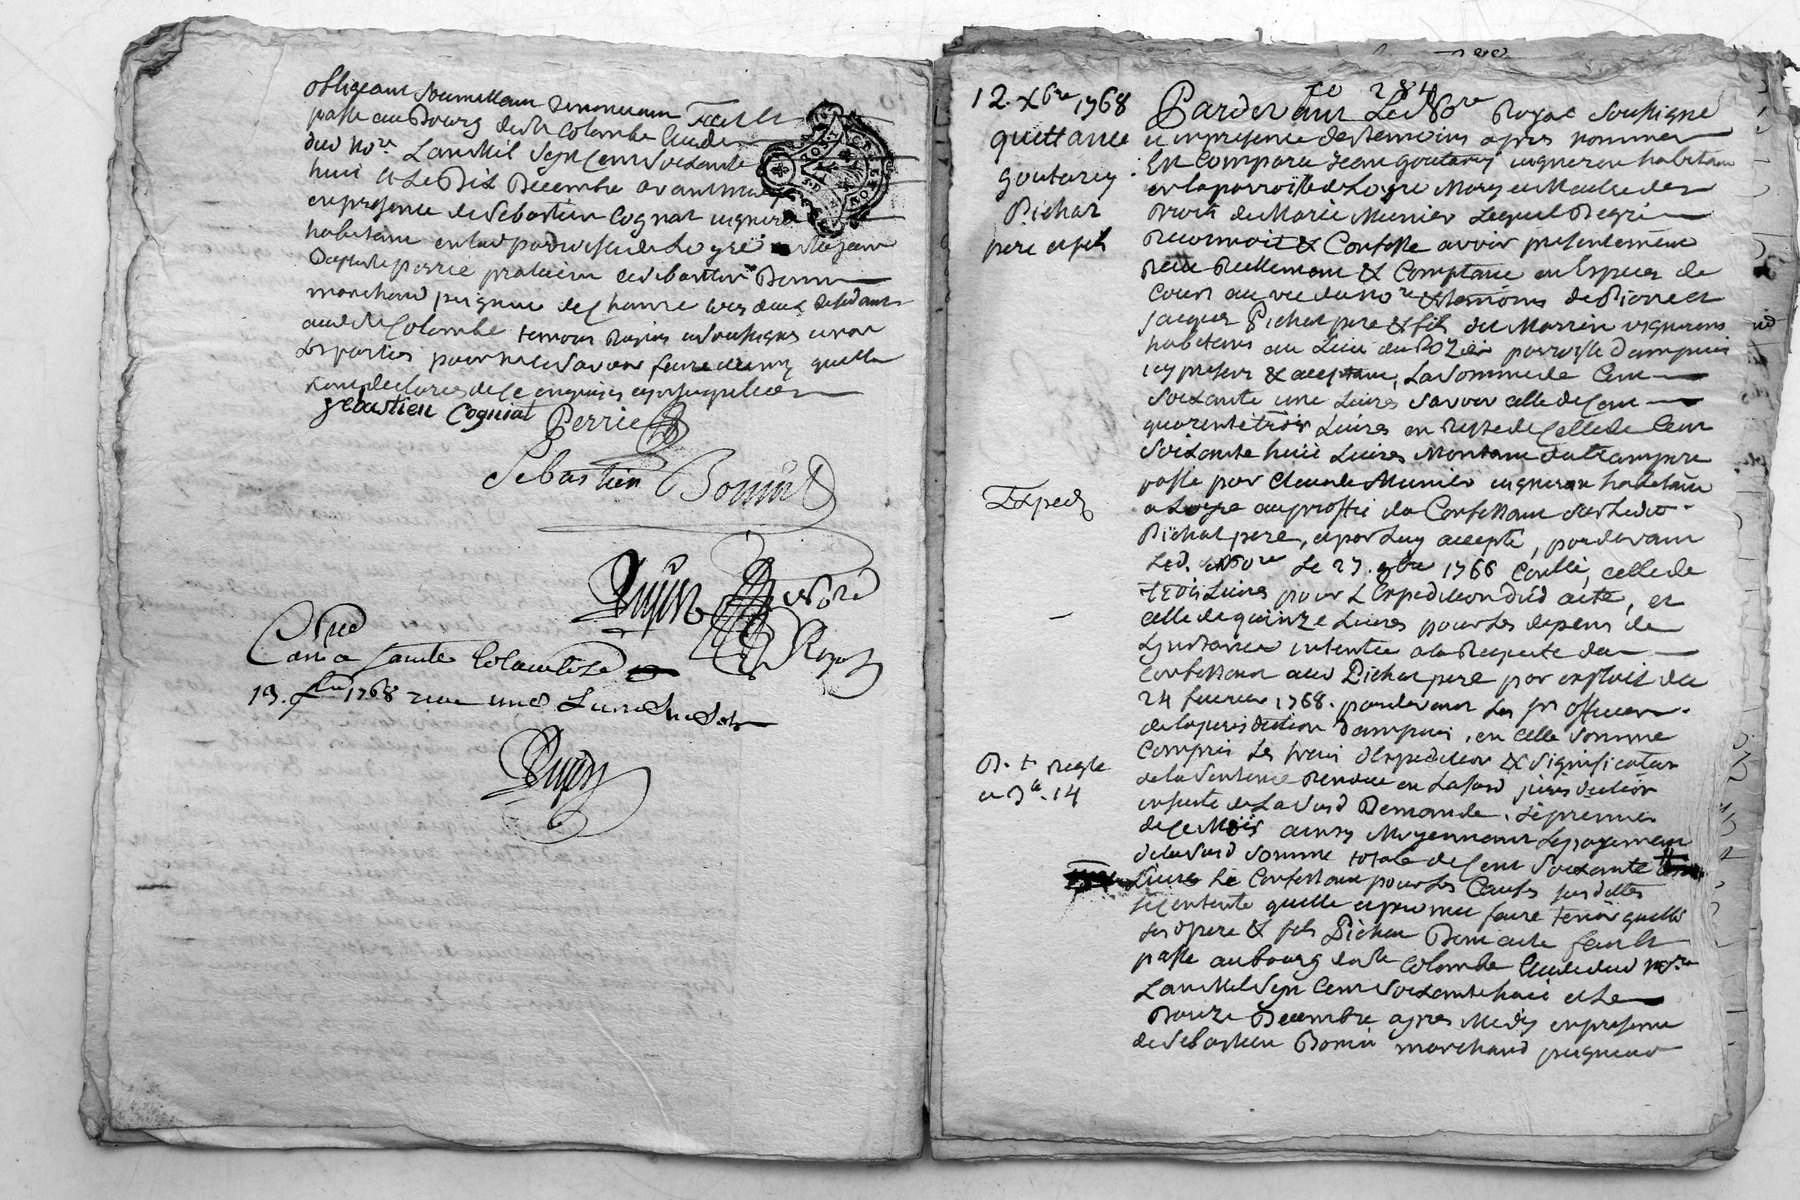 obligeant soumettant renonceant Fait et
passé au Bourg de Ste Colombe Etude
dud nore L'an Mil Sept Cent Soixante
huit et Le Dix Decembre avant midy
en presence de Sebastien Cognat vigneron
habitant en lad parroisse de Loyre et Jean
Baptiste perrie praticien et Sebastien Bonin
marchand peigneur de Chanvre les deux residants
aud Ste Colombe temoins Requis et Soussignés non
Les parties pour ne le Savoir faire de enquis quelles
ont declarés de ce enquises et personnellement
Sebastien Cogniat Perrie
Sebastien Bonin
Dujin nore
Royal
Con.lé a Sainte Colombe le
13. Xbre 1768 reçu une Livre six Sols
Dujin
fo 284
12. Xbre 1768
quittance
goutarey
Pichat
pere et fils
Exped
R. t. regle
a Bte. 14
Pardevant Le Nore Royal soussigné
et en presence des temoins apres nommés
Est Comparu Jean goutarey vigneron habitant
en la parroisse de Loyre Mary et Maitre des
Droits de Marie Munier Lequel De gré
Reconnoit & Confesse avoir presentement
Reçu Reellement & Comptant en Especes de
Cours au vu du nore & temoins de Pierre et
Jacques Pichat pere & fils dit Morrin vignerons
habitans au Lieu du Rozier parroisse d'ampuis
icy presens & acceptans, La Somme de Cent
Soixante une Livres Savoir celle de Cent
quarente trois Livres en Reste de Celle de Cent
Soixante huit Livres Montant du transport
passé par Claude Munier vigneron habitant
a Loyre au proffit du Confessant sur Ledit
Pichat pere, et par Luy accepté, pardevant
Led. Nore Le 27. 9bre 1766 Conllé, celle de
trois Livres pour L'Expedition dud acte, et
celle de quinze Livres pour Les depens de
L'instance intentée a la Requete du
Confessant aud Pichat pere par exploit du
24 fevrier 1768. pardevant Les Srs officiers
de la jurisdiction d'ampuis, en celle Somme
Compris Les frais d'Expedition & Signification
de la Sentence Rendue en Lad jurisdiction
en suite de La Susd Demande, Le premier
de Ce Mois ainsy Moyennant Le payement
de la Susd Somme totale de Cent Soixante une
Livres Le Confessant pour Les Causes susdittes
Se Contente quitte et promet faire tenir quittes
Lesd pere & fils Pichat Dont acte fait et
passé au bourg de Ste Colombe Etude dud nore
L'an Mil Sept Cent Soixante huit et Le
Douze Decembre apres Midy en presence
de Sebastien Bonin marchand peigneur